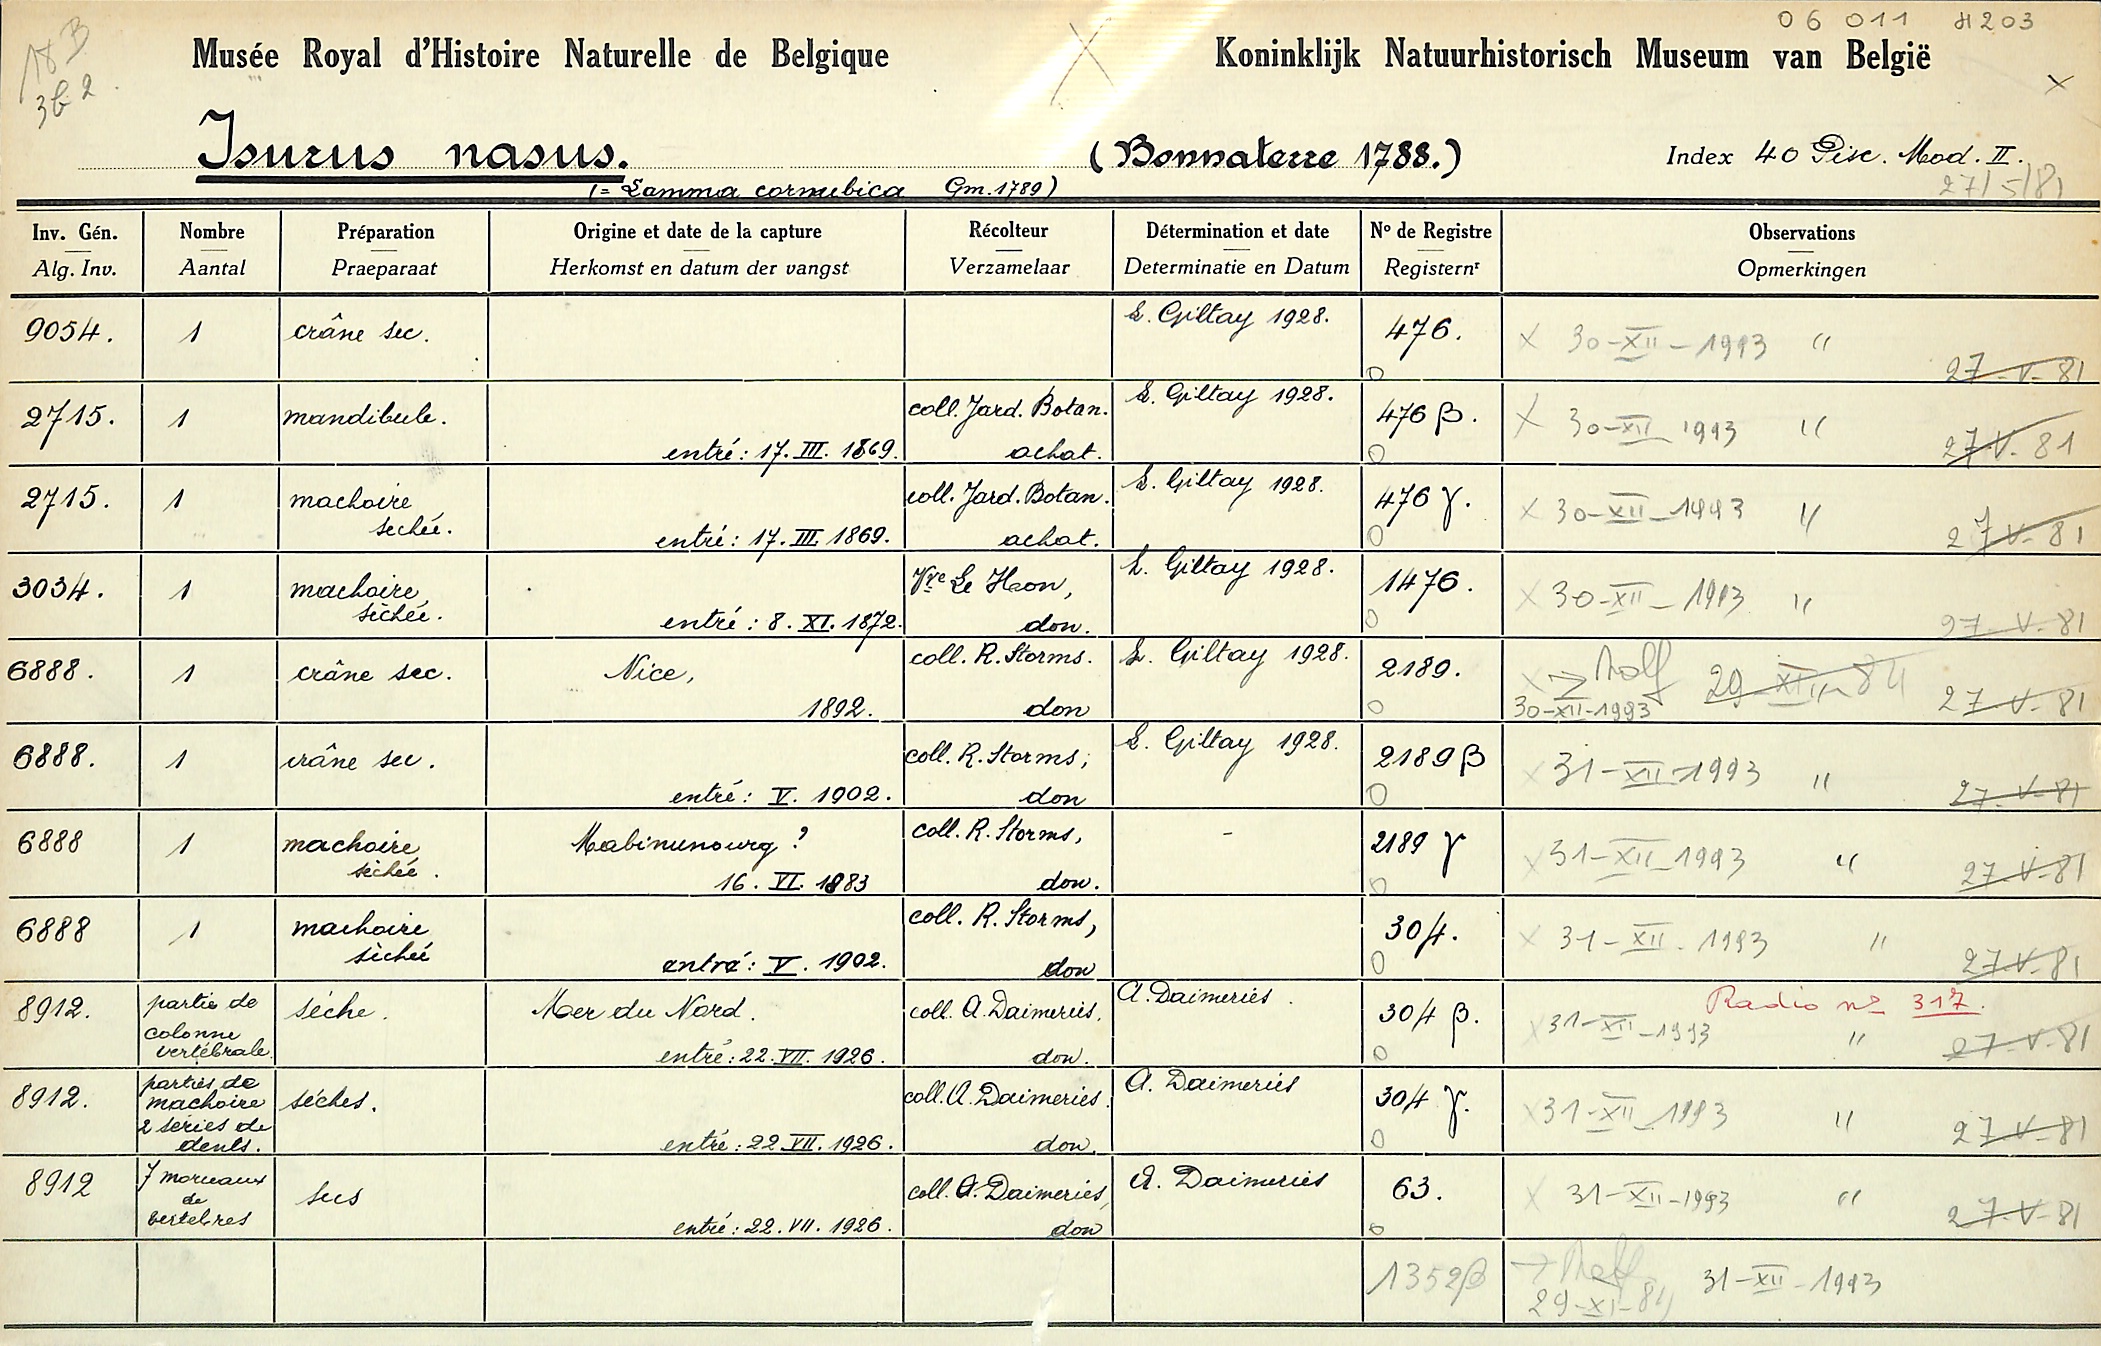 06 011 H203
18 B
3b2
Musée Royal d'Histoire Naturelle de Belgique
Koninklijk Natuurhistorisch Museum van België
Isurus nasus. (Bonnaterre 1788.) Index 40 Pisc. Mod. II.
(= Lamna cornubica Gm. 1789) 27/5/81
Inv. Gén. Nombre Préparation Origine et date de la capture Récolteur Détermination et date No de Registre Observations
Alg. Inv. Aantal Praeparaat Herkomst en datum der vangst Verzamelaar Determinatie en Datum Registernr Opmerkingen
9054. 1 crâne sec. L. Giltay 1928. 476. x 30-XII-1993 "
0 27-V-81
2715. 1 mandibule. coll. Jard. Botan. L. Giltay 1928. 476 β. x 30-XII-1993 "
entré: 17. III. 1869. achat. 0 27-V-81
2715. 1 machoire coll. Jard. Botan. L. Giltay 1928. 476 γ. x 30-XII-1993 "
sechée. entré: 17. III. 1869. achat. 0 27-V-81
3034. 1 machoire Vve Le Hon, L. Giltay 1928. 1476. x 30-XII-1993 "
sèchée. entré: 8. XI. 1872. don. 0 27-V-81
6888. 1 crâne sec. Nice, coll. R. Storms. L. Giltay 1928. 2189. x 29-XI-84
1892. don 0 30-XII-1993 27-V-81
6888. 1 crâne sec. coll. R. Storms; L. Giltay 1928. 2189 β x 31-XII-1993 "
entré: V. 1902. don 0 27-V-81
6888 1 machoire coll. R. Storms, - 2189 γ x 31-XII-1993 "
sèchée. 16. VI. 1883 don. 0 27-V-81
6888 1 machoire coll. R. Storms, 304. x 31-XII-1993 "
sèchée entré: V. 1902. don 0 27-V-81
8912. partie de sèche. Mer du Nord. coll. A. Daimeries. A. Daimeries. 304 β. Radio no 317.
colonne x 31-XII-1993 "
vertébrale entré: 22. VII. 1926. don. 0 27-V-81
8912. parties de sèches. coll. A. Daimeries. A. Daimeries 304 γ.
machoire x 31-XII-1993 "
2 séries de
dents. entré: 22. VII. 1926. don. 0 27-V-81
8912 7 morceaux secs coll. A. Daimeries, A. Daimeries 63. x 31-XII-1993 "
de
vertebres entré: 22. VII. 1926. don 0 27-V-81
1352β → 31-XII-1993
29-XI-84